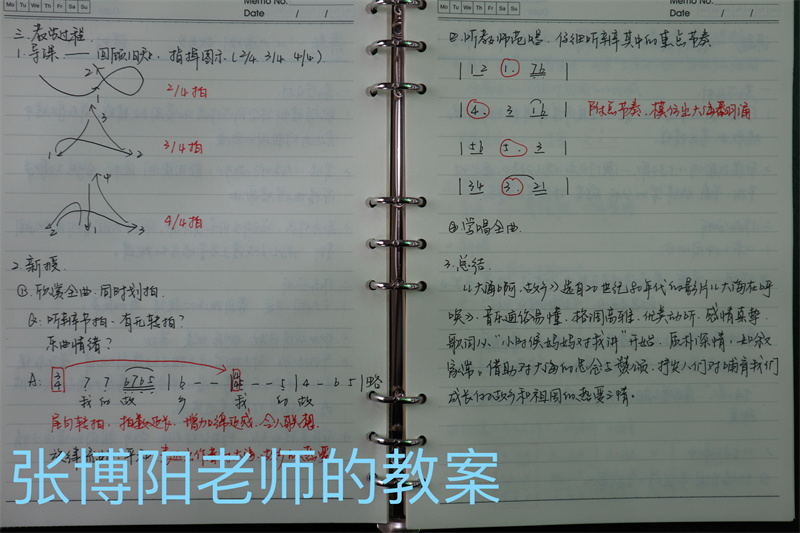 Mo Tu We Th Fr Sa Su
Memo No.
Date / /
三.教学过程.
1.导课 —— 回顾旧知, 指挥图示 (2/4 3/4 4/4)
2
1
2/4拍
3
1 2
3/4拍
4
2 1 3
4/4拍
2.新授.
①.欣赏全曲.同时划拍.
Q: 听辨节拍.有无转拍?
乐曲情绪?
A: 3/4 7 7 6765 | 6 - - 4/4 - - 5 | 4 - 6 5 | 略
我的故 乡 我 的故
尾句转拍, 拍数延长, 增加绵延感.令人联想.
张博阳老师的教案
Memo No.
Date / /
四.听教师范唱.仔细听辨其中的重点节奏.
| 1 2 1. 76 |
| 4. 3 16 | 附点节奏.模仿出大海的涌
| 56 5. 3 |
| 34 3. 21 |
④学唱全曲.
3.总结.
《大海啊,故乡》选自20世纪80年代的影片《大海在呼
唤》.音乐通俗易懂,格调高雅,优美动听,感情真挚.
歌词以“小时候妈妈对我讲”开始,质朴深情,如叙
家常.借助对大海的思念与赞颂,抒发人们对哺育我们
成长的故乡和祖国的热爱之情.